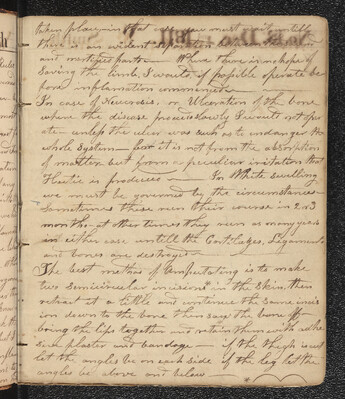 taken place in that case you must wait untill
there is an evident separation between the
and mortified parts — Where there is no hope of
Saving the limb, I would if possible operate be
fore inflamation commences —
In case of Necrosis, or Ulceration of the bone
where the disease proves slowly I would not opera
te unless the ulcer was such as to endanger the
whole System — for it is not from the absorption
of matter but from a peculiar irritation that
Hectic is produced — In White Swelling
we must be governed by the circumstances
Sometimes these run their course in 2 or 3
months at other times they run as many years
in either case untill the Cartilages, Ligaments
and bones are destroyed —
The best method of Amputating is to make
two Semicircular incisions in the Skin, then
retract it a little and continue the same incis
ion down to the bone then saw the bone off
bring the lips together and retain them with adhe
sive plaster and bandage — if the thigh is cut
let the angles be on each side if the leg let the
angles be above and below —